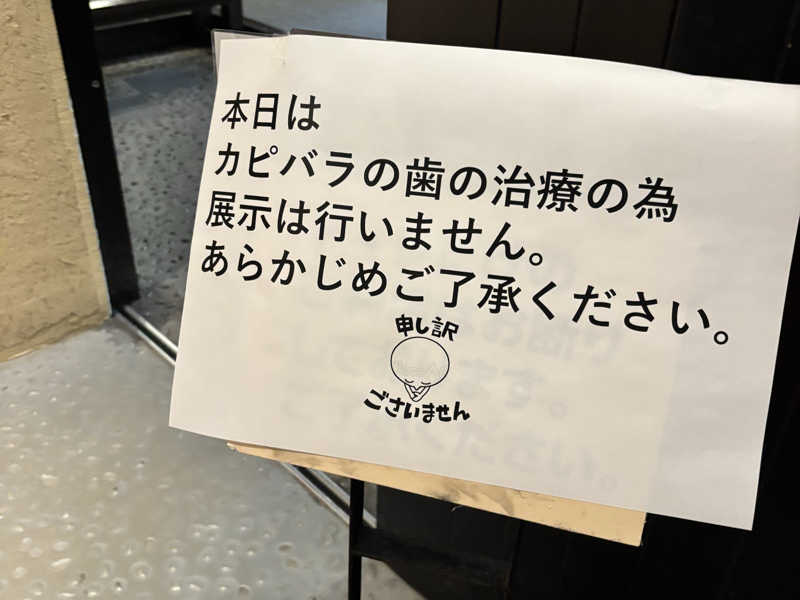 本日は
カピバラの歯の治療の為
展示は行いません。
あらかじめご了承ください。
申し訳
ございません